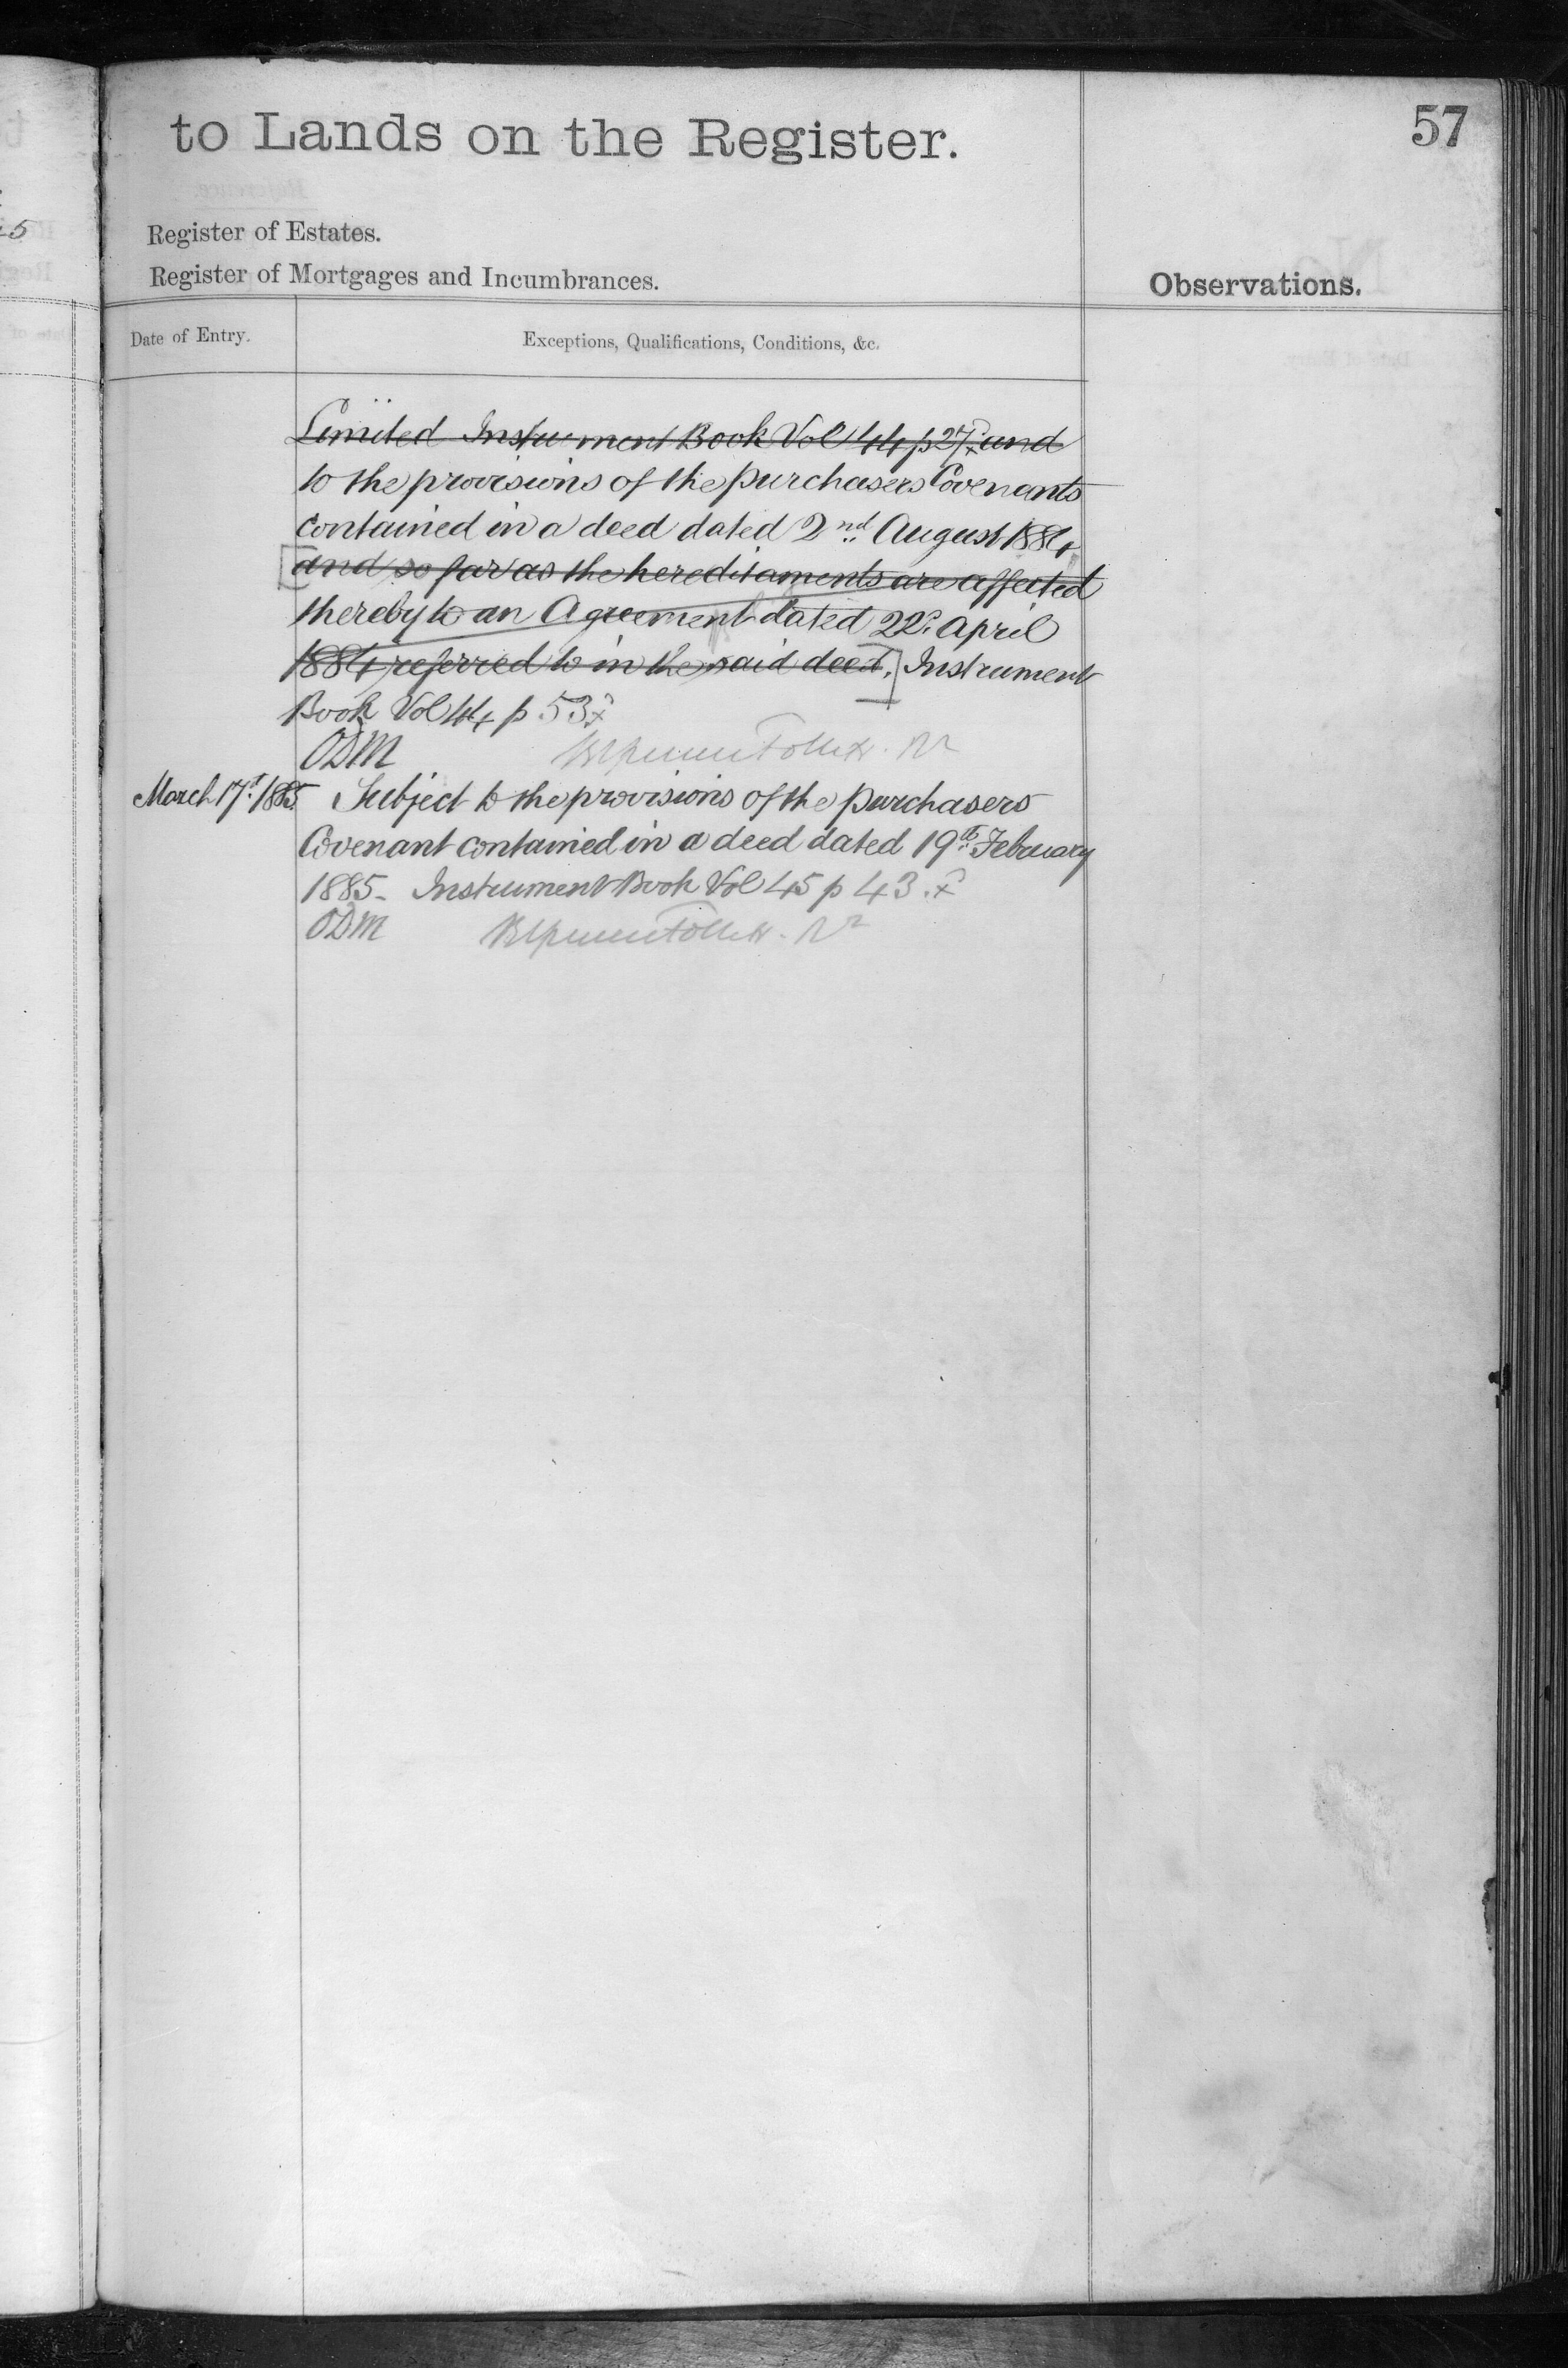 to Lands on the Register.
57
Register of Estates.
Register of Mortgages and Incumbrances.
Observations.
Date of Entry.
Exceptions, Qualifications, Conditions, &c.
Limited Instrument Book Vol 44 p 27 and
to the provisions of the purchasers Covenants
contained in a deed dated 2nd August 1884
[and so far as the hereditaments are affected
thereby to an Agreement dated 22d April
1884 referred to in the said deed.] Instrument
Book Vol 44 p 53
ODM
March 17th 1885 Subject to the provisions of the purchasers
Covenant contained in a deed dated 19th February
1885 - Instrument Book Vol 45 p 43.
ODM